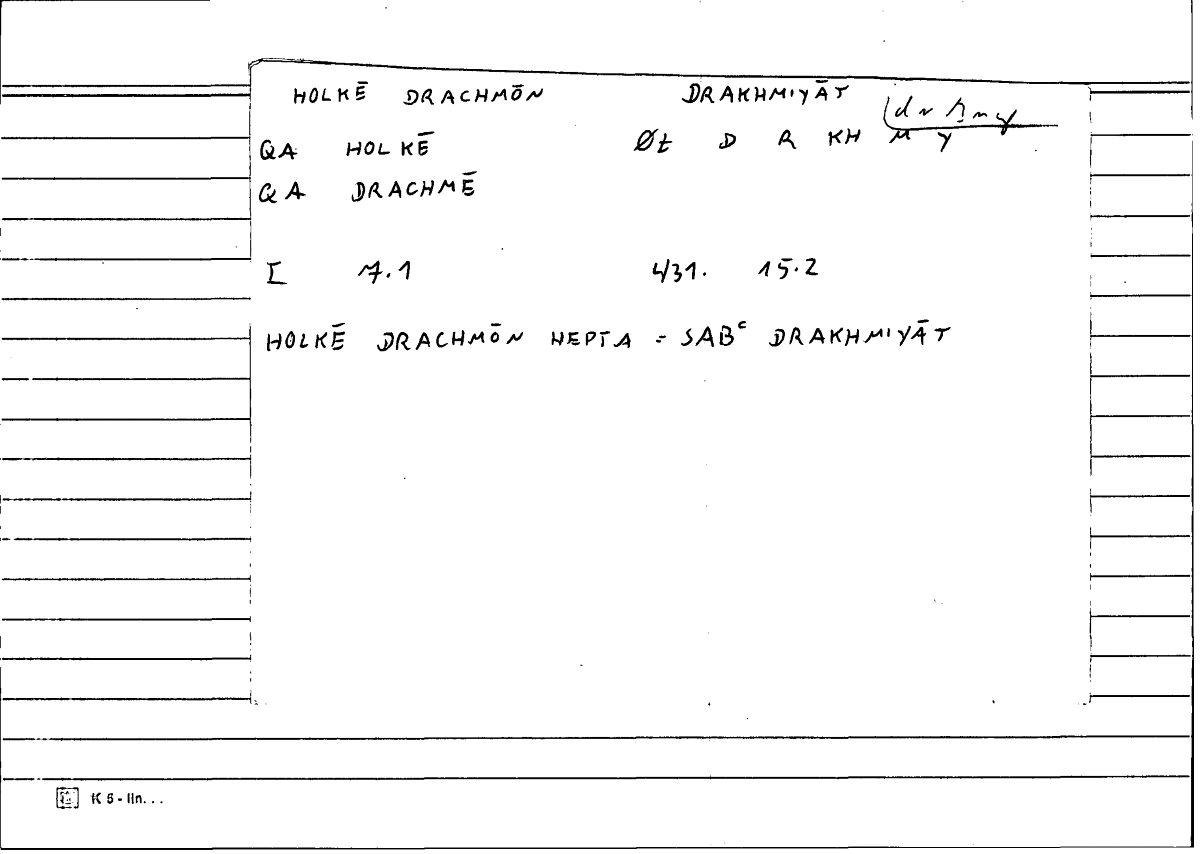 HOLKĒ DRACHMŌN DRAKHMIYĀT drḫmy
QA HOLKĒ Øt D R KH M Y
QA DRACHMĒ
I 7.1 4/31. 15.2
HOLKĒ DRACHMŌN HEPTA = SABᶜ DRAKHMIYĀT
K 5 - lin...